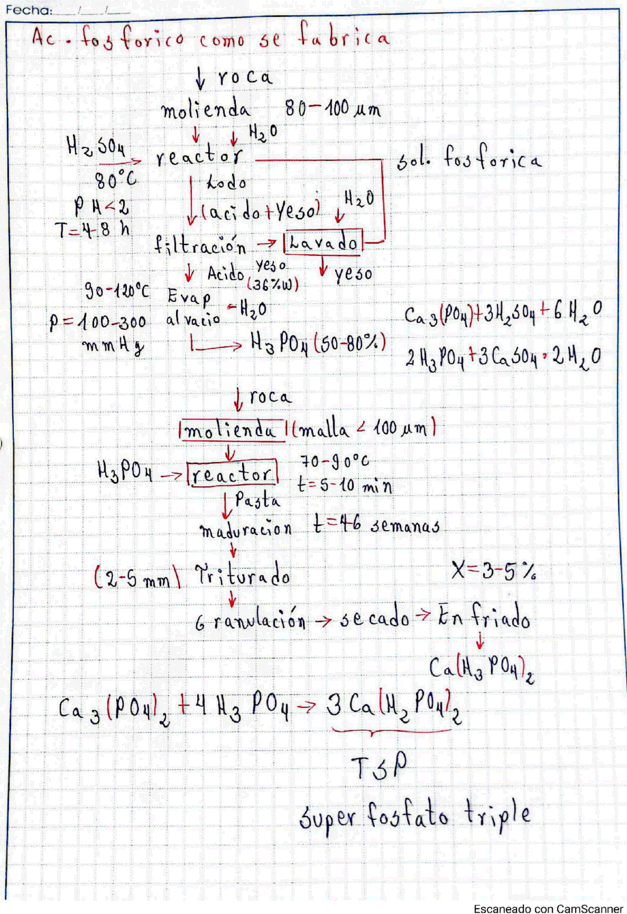 Fecha: __/__/__
Ac. fosforico como se fabrica
↓ roca
molienda 80-100 μm
↓ ↓ H2O
H2SO4 → reactor
80°C
PH<2
T=4-8 h
Lodo
sol. fosforica
(acido+Yeso)
↓ H2O
filtración → Lavado
↓ Acido yeso (36%W)
↓ yeso
90-120°C Evap -H2O
P=100-300 al vacio
mmHg
→ H3PO4 (50-80%)
Ca3(PO4)+3H2SO4+6H2O
2H3PO4+3CaSO4·2H2O
↓ roca
molienda (malla < 100 μm)
↓
H3PO4 → reactor 70-90°C
t=5-10 min
↓ Pasta
maduracion t=4-6 semanas
↓
(2-5 mm) Triturado X=3-5%
↓
Granulación → secado → Enfriado
↓
Ca(H3PO4)2
Ca3(PO4)2+4H3PO4 → 3Ca(H2PO4)2
TSP
super fosfato triple
Escaneado con CamScanner